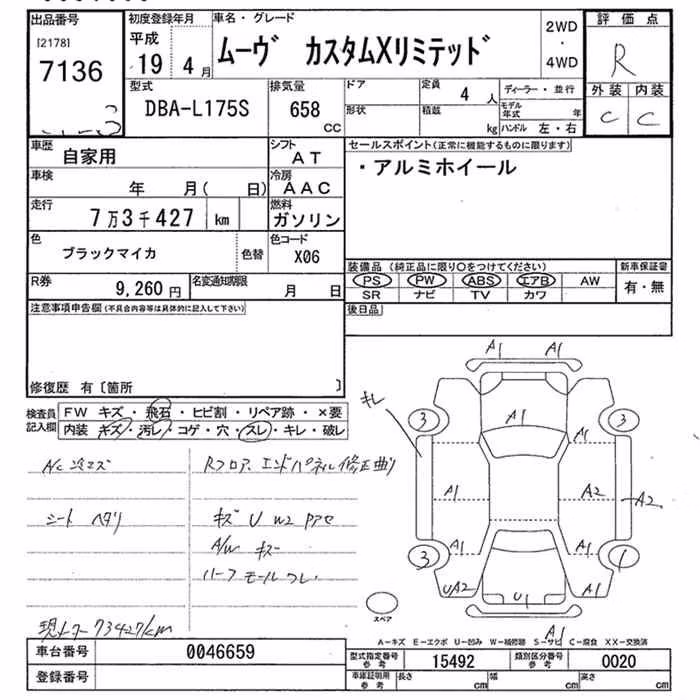 出品番号 初度登録年月 車名・グレード 評価点
[2178] 平成 2WD
7136 19 4月 ムーヴ カスタムXリミテッド ・
4WD R
型式 排気量 ドア 定員 ディーラー・並行 外装 内装
DBA-L175S 658 4人 モデル年式 年 C C
CC 形状 積載 kg ハンドル 左・右
車歴 自家用 シフト AT セールスポイント(正常に機能するものに限ります)
車検 年 月( 日) 冷房 AAC ・アルミホイール
走行 7万3千427 km 燃料 ガソリン
色 ブラックマイカ 色替 色コード X06
装備品 (純正品に限り○をつけてください) 新車保証書
R券 9,260円 名変通知期限 月 日 PS PW ABS エアB AW 有・無
SR ナビ TV カワ
注意事項申告欄(不具合内容等は具体的に記入して下さい) 後日品
修復歴 有〔箇所 〕
検査員 FW キズ・飛石・ヒビ割・リペア跡・×要
記入欄 内装 キズ・汚レ・コゲ・穴・スレ・キレ・破レ
A1 A1
キレ 3 A1 3
A/C 冷エズ Rフロア、エンドパネル修正曲り
A1 A2 A2
シート ヘタリ キズ U W2 アセ
A/W キズ
3 A1 A1 1
UA2 U1 A1
スペア
A1
現メーター 73427km
A−キズ E−エクボ U−凹み W−補修跡 S−サビ C−腐食 XX−交換済
車台番号 0046659 型式指定番号 参考 15492 類別区分番号 参考 0020
登録番号 車庫証明用 参考 長さ cm 幅 cm 高さ cm